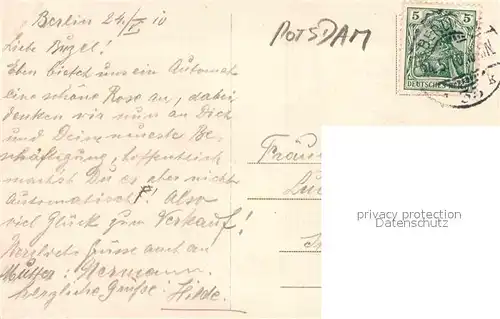 Berlin 24/ 10
POTSDAM
5 5
DEUTSCHES
Liebe
Eben bietet uns ein Automat
eine schöne Rose an, dabei
denken wir nun an Dich
und Deine neueste Be-
schäftigung, hoffentlich
machst Du es aber nicht
automatisch! Also
viel Glück zum Verkauf!
Herzliche Grüsse auch an
Mutter: Hermann.
herzliche Grüße. Hilde.
privacy protection
watermark